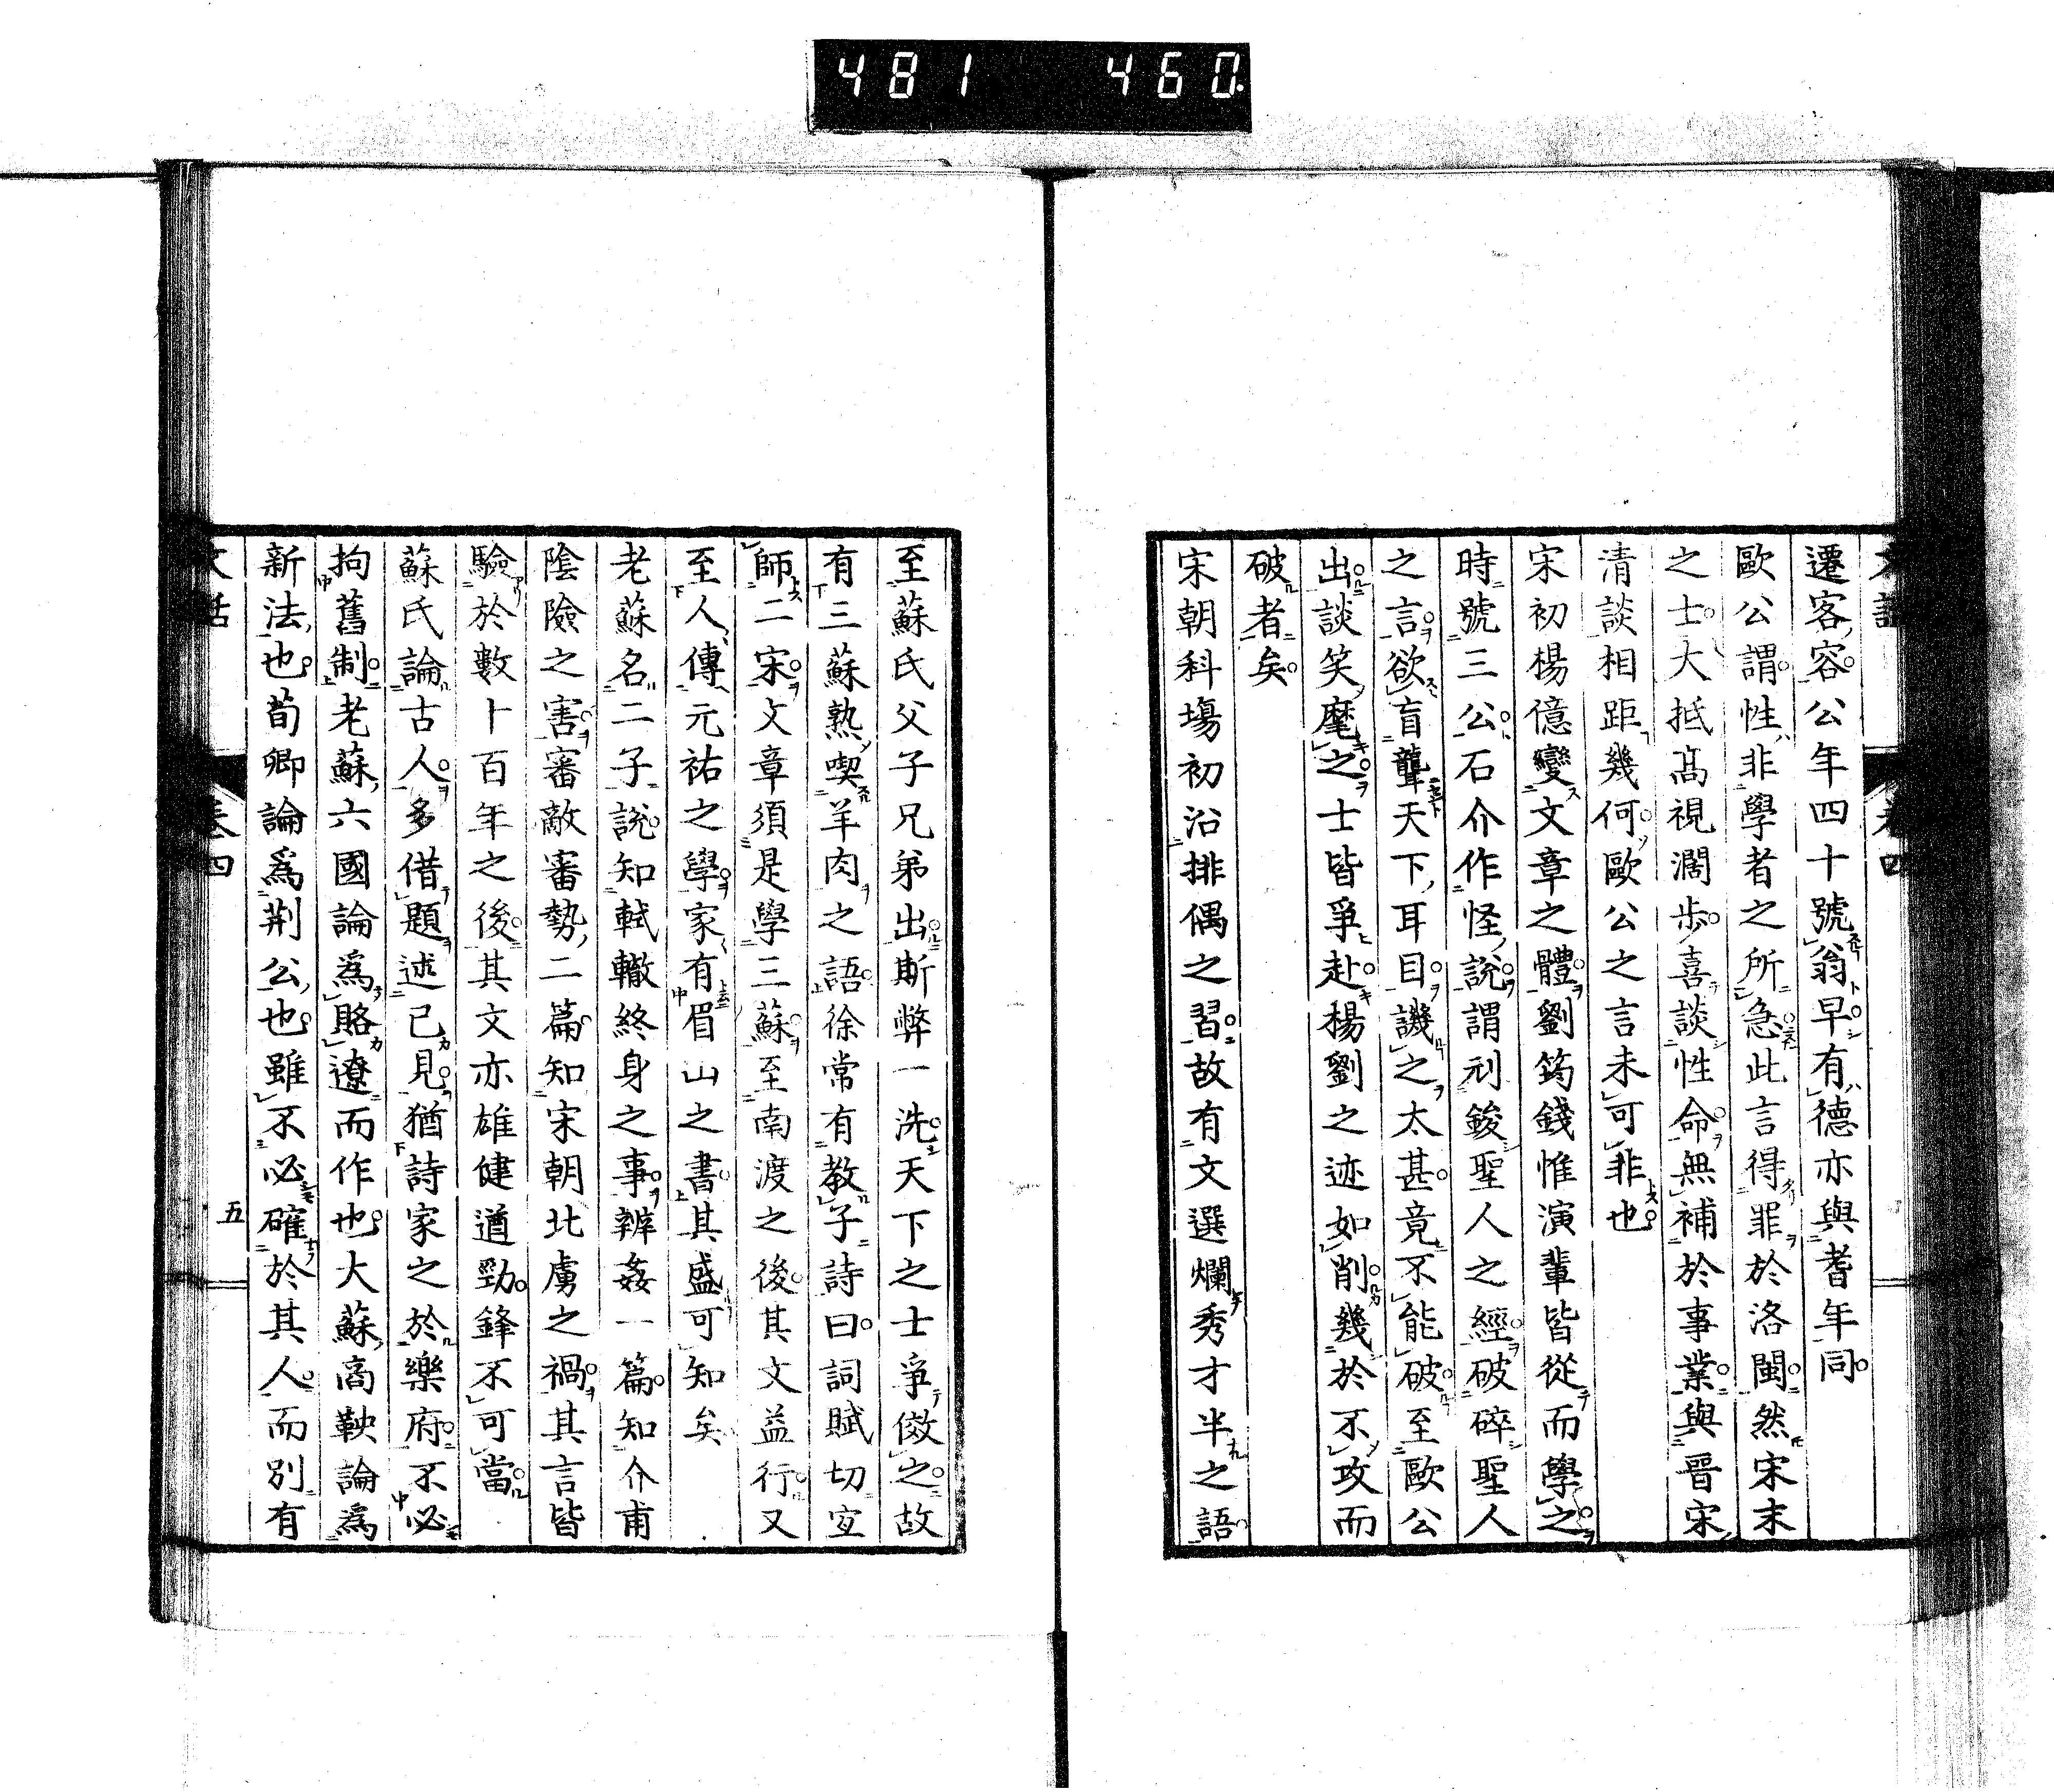 481 460
遷客容公年四十號翁早有德亦與耆年同
歐公謂性非學者之所急此言得罪於洛閩然宋末
之士大抵髙視濶歩喜談性命無補於事業與晉宋
清談相距幾何歐公之言未可非也
宋初楊億變文章之體劉筠錢惟演輩皆從而學之
時號三公石介作怪說謂刓鋑聖人之經破碎聖人
之言欲盲聾天下耳目譏之太甚竟不能破至歐公
出談笑麾之士皆爭赴楊劉之迹如削幾於不攻而
破者矣
宋朝科塲初沿排偶之習故有文選爛秀才半之語
至蘇氏父子兄弟出斯弊一洗天下之士爭傚之故
有三蘇熟喫羊肉之語徐常有教子詩曰詞賦切宐
師二宋文章須是學三蘇至南渡之後其文益行又
至人傳元祐之學家有眉山之書其盛可知矣
老蘇名二子說知軾轍終身之事辨姦一篇知介甫
陰險之害審敵審勢二篇知宋朝北虜之禍其言皆
驗於數十百年之後其文亦雄健遒勁鋒不可當
蘇氏論古人多借題述己見猶詩家之於樂府不必
拘舊制老蘇六國論爲賂遼而作也大蘇商鞅論爲
新法也荀卿論爲荆公也雖不必確於其人而別有
文話 卷四 五